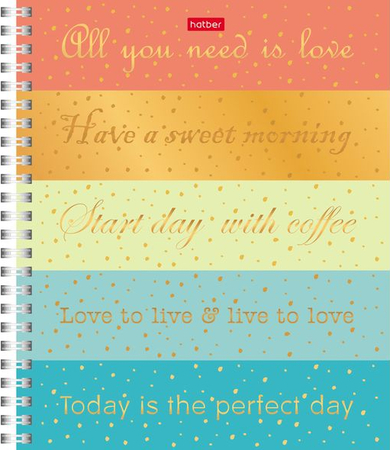 hatber
All you need is love
Have a sweet morning
Start day with coffee
Love to live & live to love
Today is the perfect day